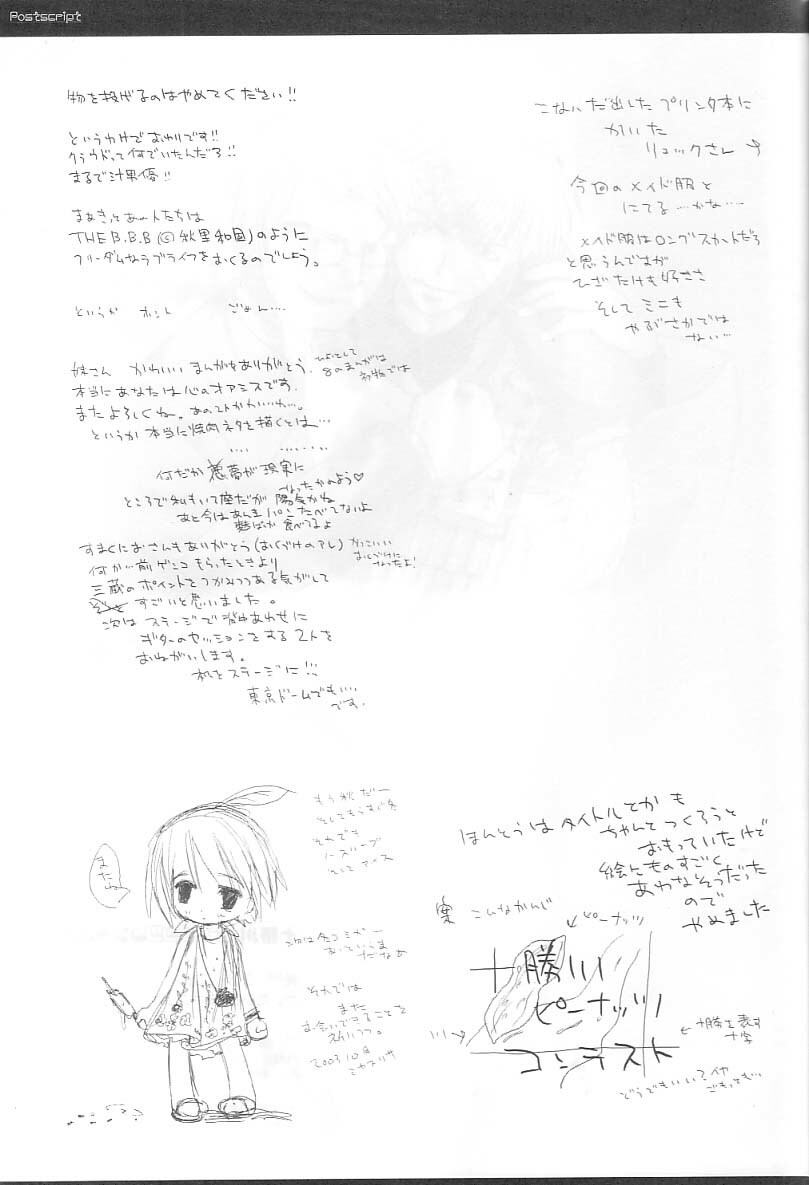 Postscript
物を投げるのはやめてください!!
というわけでおわりです!!
クラウドって何でいたんだろ!!
まるで汁果優!!
まあきっとあの人たちは
THE B.B.B(©秋里和国)のように
フリーダムなラブライフをおくるのでしょう。
というか ホント ごめん‥‥
妹さん かわいいまんがをありがとう。
本当にあなたは心のオアシスです。
またよろしくね。
というか本当に焼肉ネタを描くとは…
何だか悪夢が現実に
なったかのよう♡
ところで私もいて座だが 陽気かね
あと今はあんまパンたべてないよ
麺ばっか食べてるよ
すまくにおさんもありがとう(おくづけのアレ)
かっこいい
おくづけに
なったよ!
何か…前ゲンコもらったときより
三蔵のポイントをつかみつつある気がして
すごいと思いました。
次はステージで背中あわせに
ギターのセッションをする2人を
おねがいします。
私をステージに!!!
東京ドームでも‥‥
です。
こないだ出したプリンタ本に
かいた
リュックさん
今回のメイド服と
にてる…かな…
メイド服はロングスカートだろ
と思うんですが
ひざたけも好きさ
そしてミニも
やぶさかでは
ない…
またね
もう秋だー
そしてもうすぐ冬
それでも
ノースリーブ
そしてアイス
それでは
また
お会いできることを
祈りつつ。
2003 10月
ほんとうはタイトルとかも
ちゃんとつくろうと
おもっていたけど
絵とものすごく
あわなそうだった
ので
やめました
案 こんなかんじ
←ピーナッツ
十勝川
ピーナッツ
コンテスト
川→
←十勝を表す
十字
どうでもいい?や
ごもっとも…